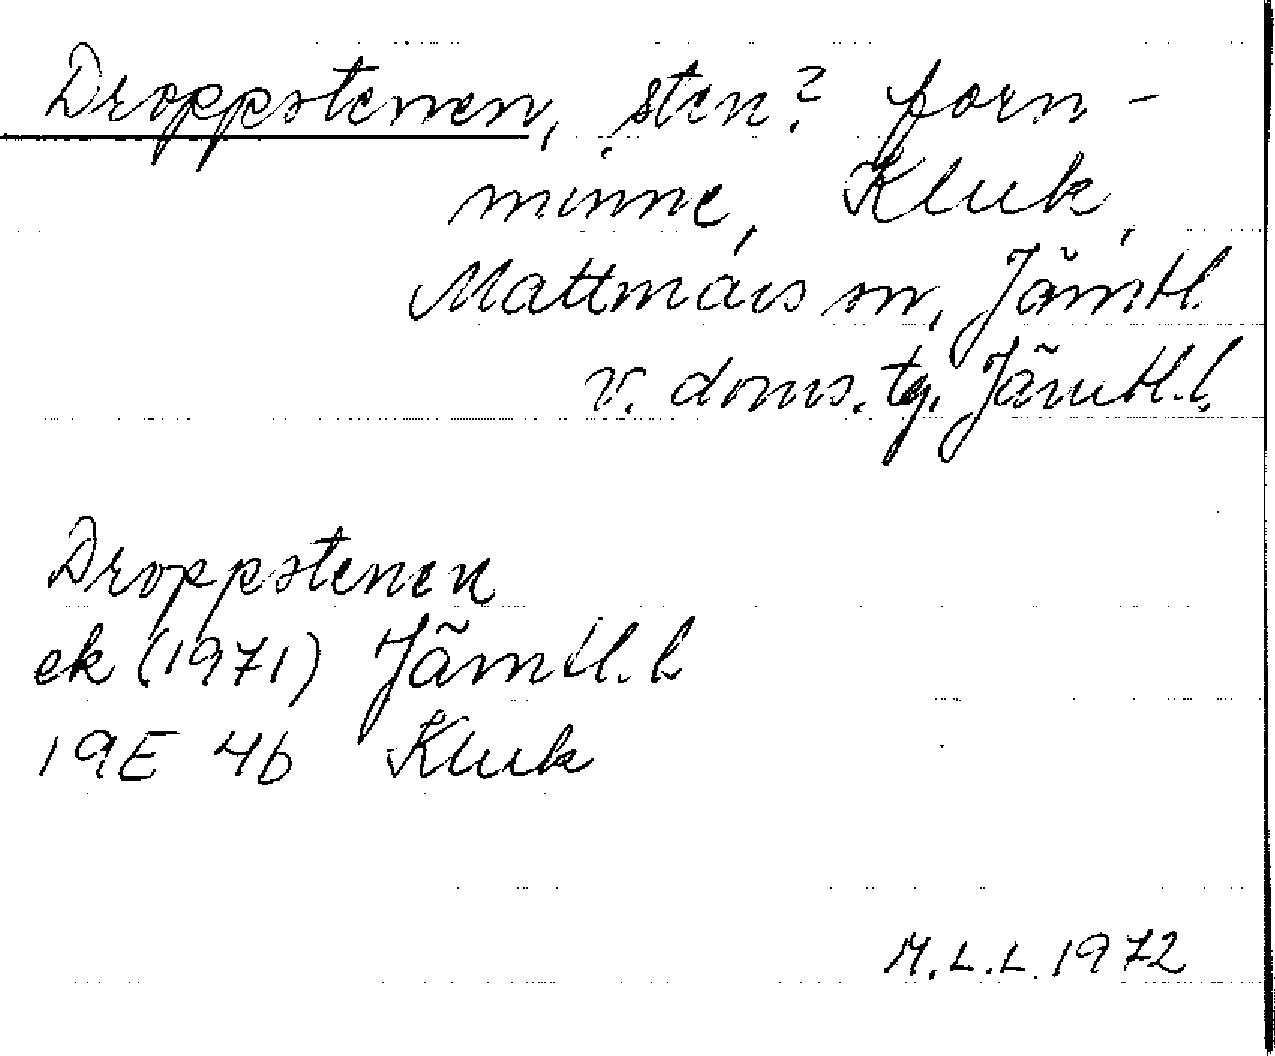 Droppstenen, sten? forn-
minne, Kluk,
Mattmars sn, Jämtl.
v. doms. tg. Jämtl. l.
Droppstenen
ek (1971) Jämtl. l.
19E 4b Kluk
M.L.L. 1972